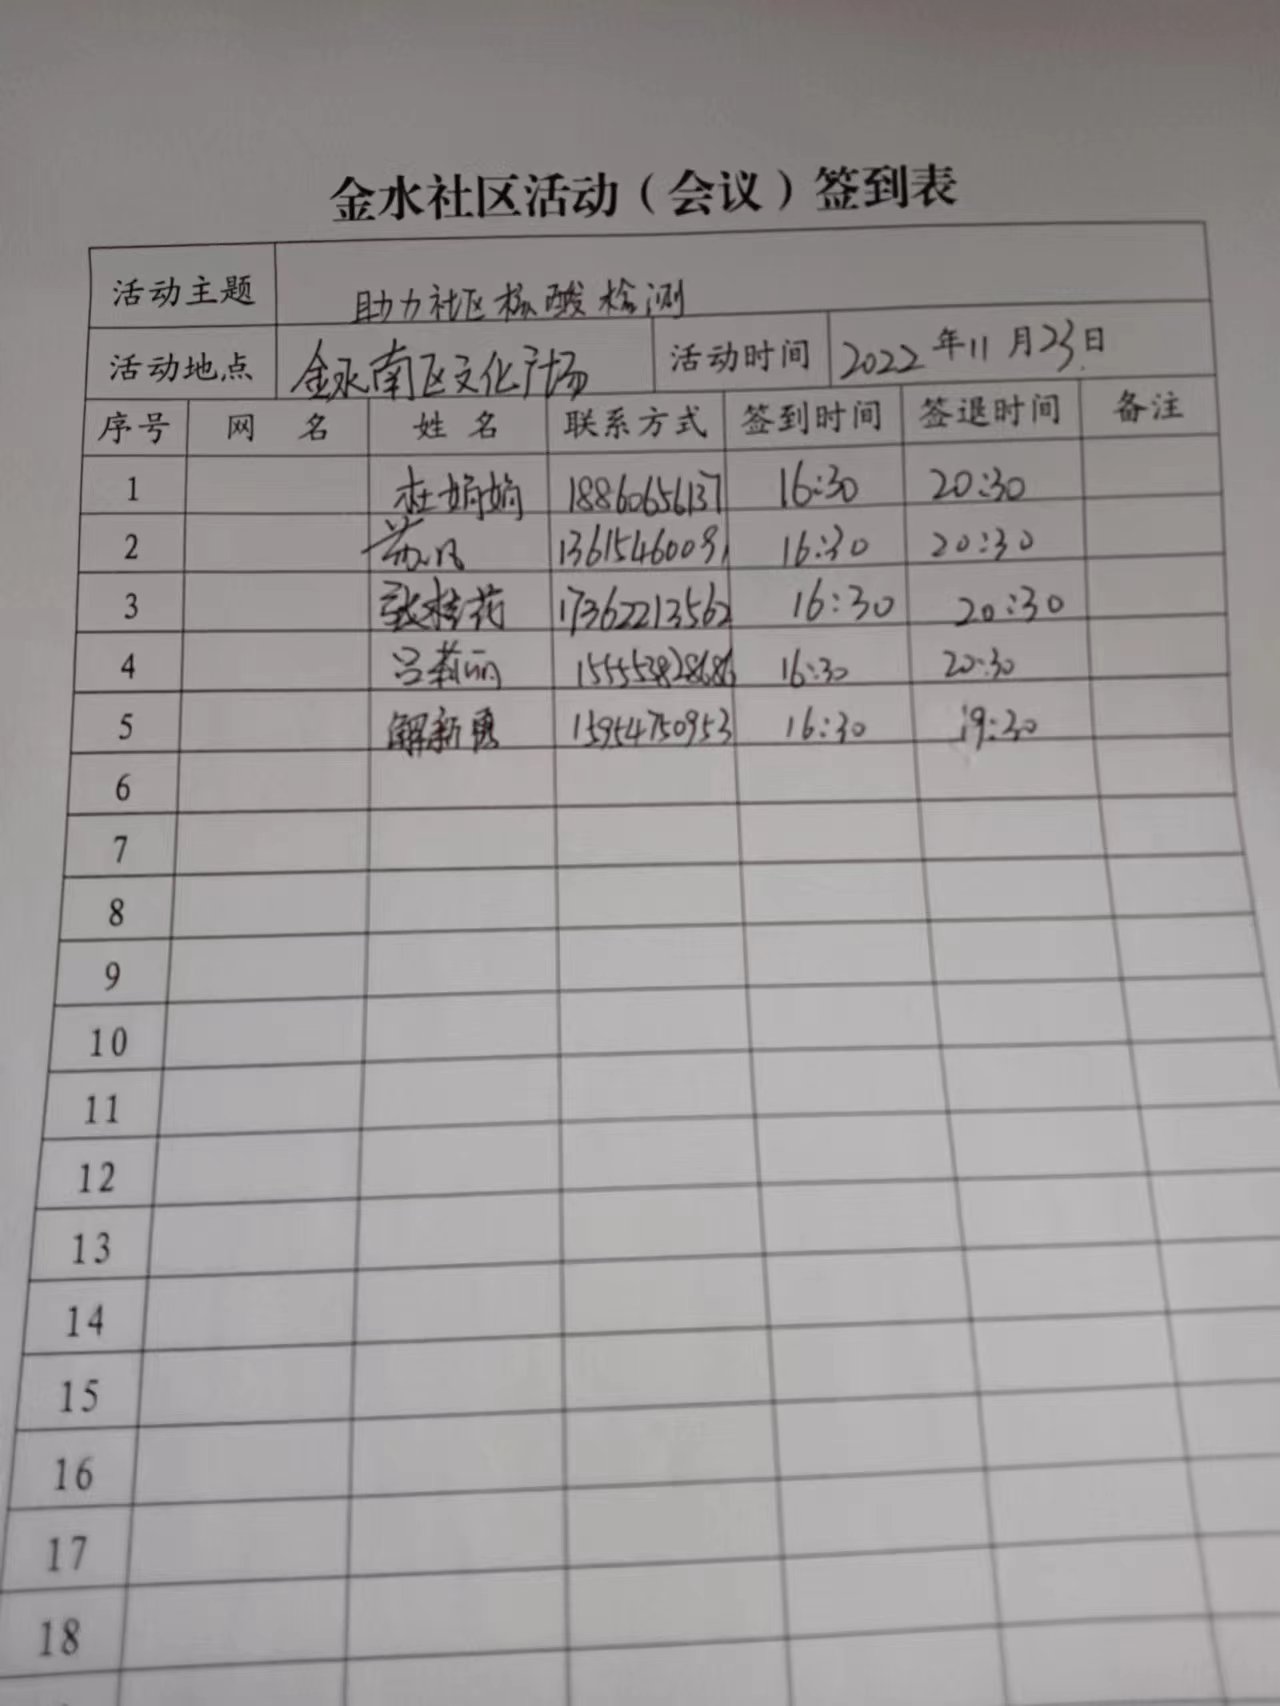 金水社区活动（会议）签到表
活动主题 助力社区核酸检测
活动地点 金水南区文化广场 活动时间 2022年11月23日
序号 网名 姓名 联系方式 签到时间 签退时间 备注
1 杜娟娟 18860656137 16:30 20:30
2 苏凡 16:30 20:30
3 张桂花 17362213562 16:30 20:30
4 吕莉丽 16:30 20:30
5 解新勇 15954750953 16:30 19:30
6
7
8
9
10
11
12
13
14
15
16
17
18